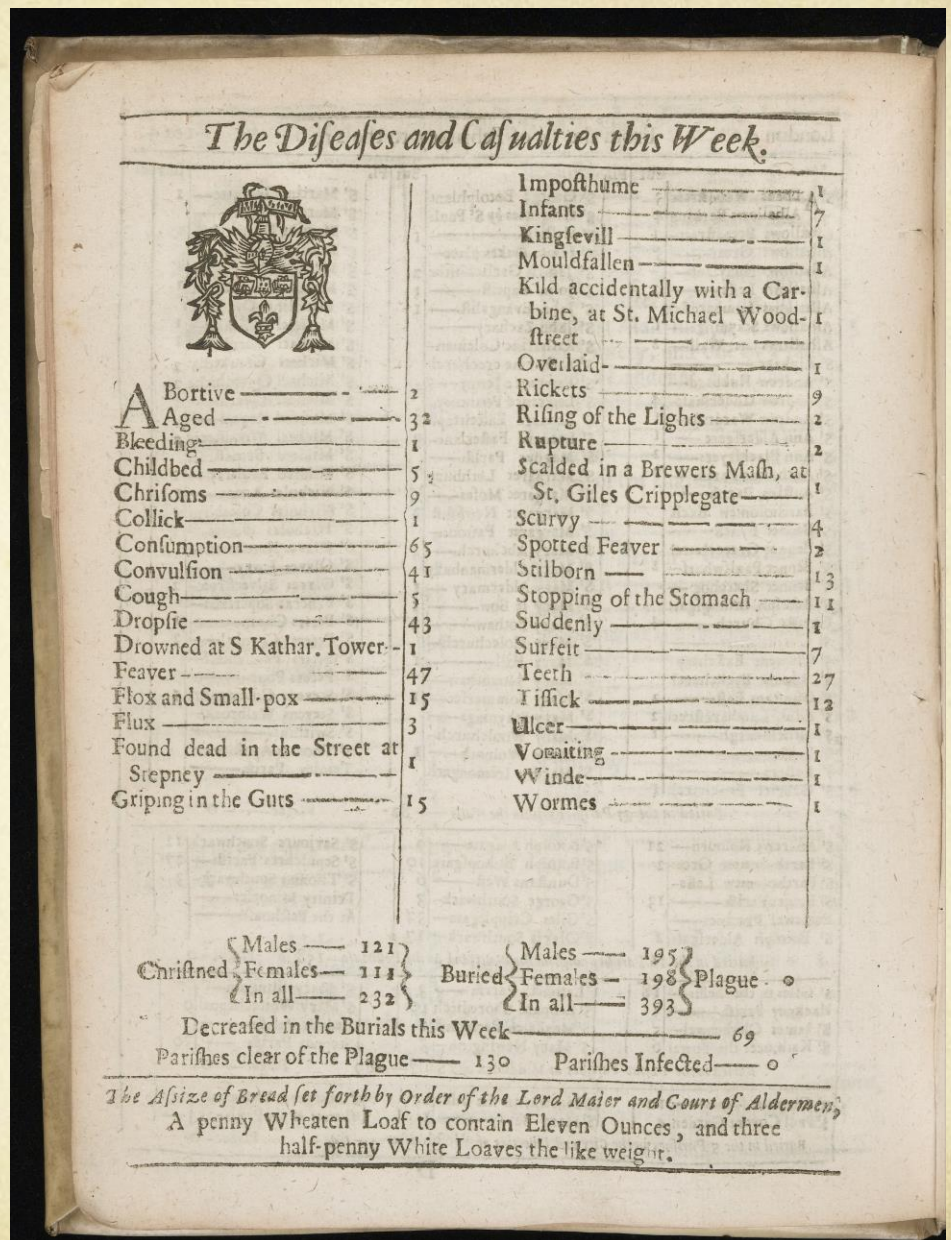 The Diſeaſes and Caſualties this Week.
ABortive 2
Aged 32
Bleeding 1
Childbed 5
Chriſoms 9
Collick 1
Conſumption 65
Convulſion 41
Cough 5
Dropſie 43
Drowned at S Kathar. Tower 1
Feaver 47
Flox and Small-pox 15
Flux 3
Found dead in the Street at
Stepney 1
Griping in the Guts 15
Impoſthume 1
Infants 7
Kingſevill 1
Mouldfallen 1
Kild accidentally with a Car-
bine, at St. Michael Wood- 1
ſtreet
Overlaid 1
Rickets 9
Riſing of the Lights 2
Rupture 2
Scalded in a Brewers Maſh, at
St. Giles Cripplegate 1
Scurvy 4
Spotted Feaver 2
Stilborn 13
Stopping of the Stomach 11
Suddenly 1
Surfeit 7
Teeth 27
Tiſſick 12
Ulcer 1
Vomiting 1
Winde 1
Wormes 1
Males 121 Males 195
Chriſtned Females 111 Buried Females 198 Plague 0
In all 232 In all 393
Decreaſed in the Burials this Week 69
Pariſhes clear of the Plague 130 Pariſhes Infected 0
The Aſsize of Bread ſet forth by Order of the Lord Maier and Court of Aldermen,
A penny Wheaten Loaf to contain Eleven Ounces, and three
half-penny White Loaves the like weight.